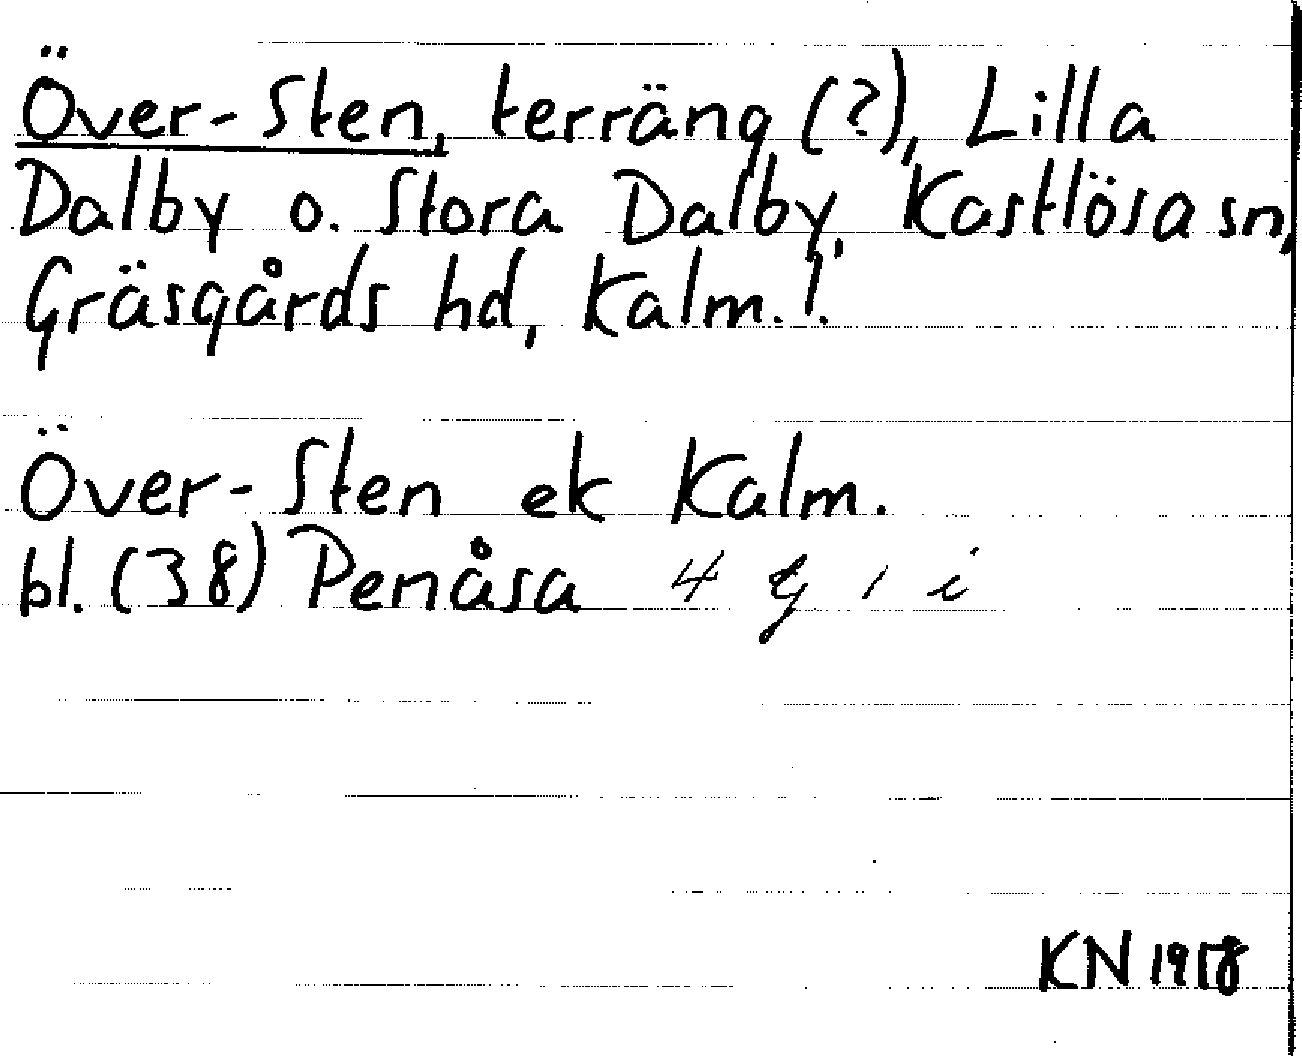 Över-Sten, terräng (?), Lilla
Dalby o. Stora Dalby, Kastlösa sn,
Gräsgårds hd, Kalm. l.
Över-Sten ek Kalm.
bl. (38) Penåsa 4 G 1 i
KN 1958